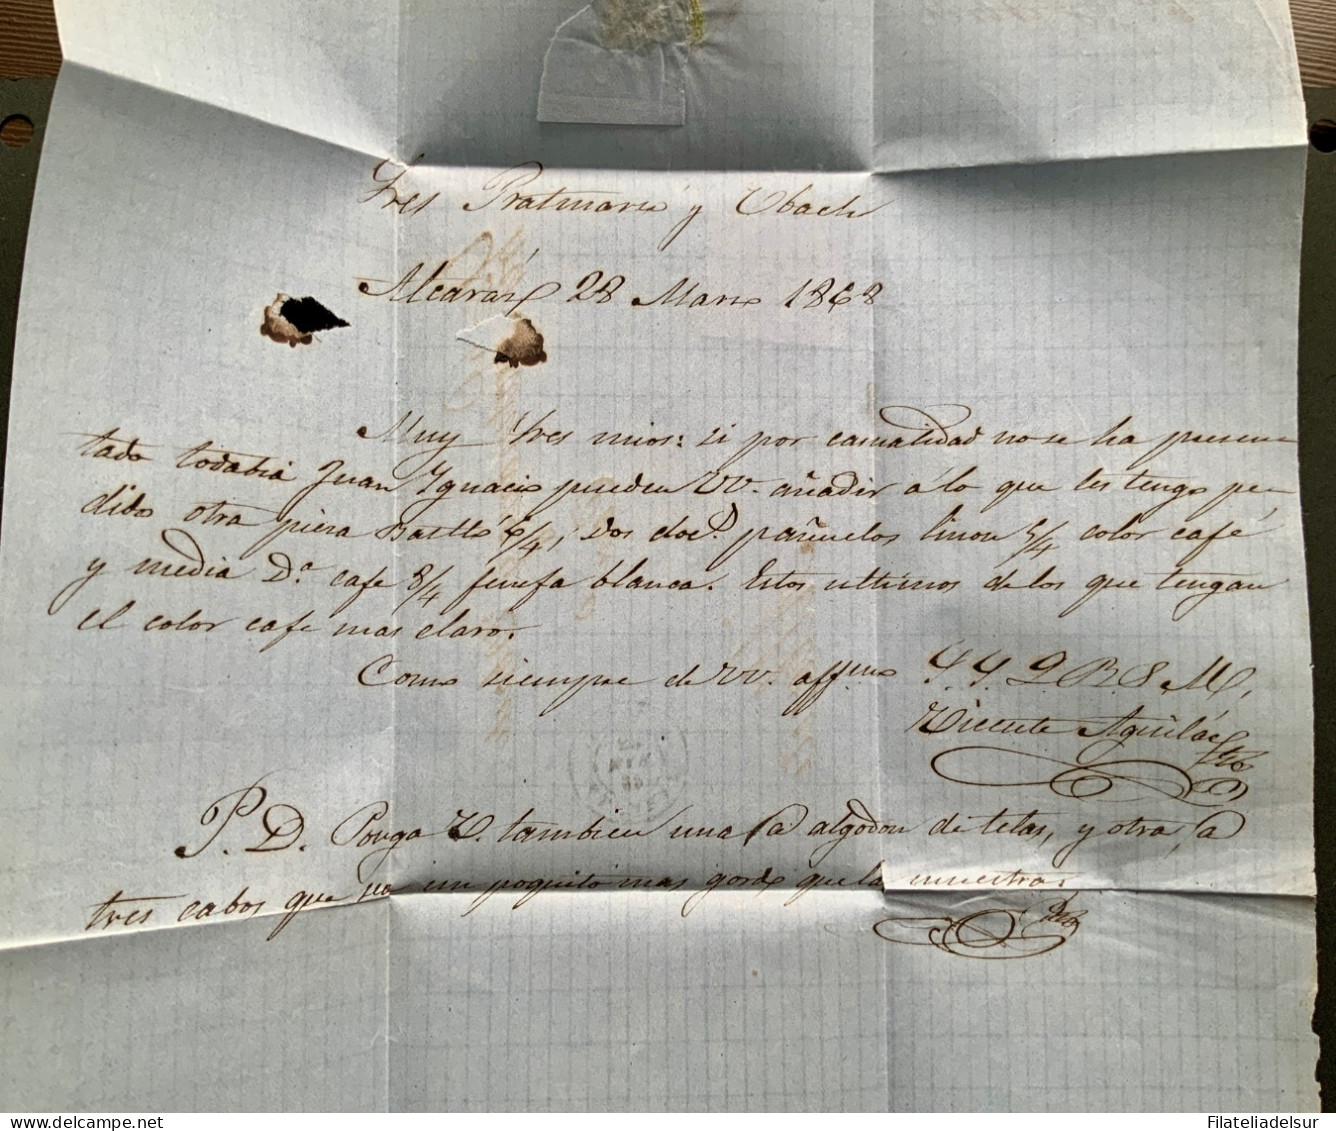 Sres Pratmarsó y Ubach
Alcaráz 28 Marzo 1868
Muy Sres mios: si por casualidad no se ha presen
tado todabia Juan Ygnacio pueden VV. añadir á lo que les tengo pe
dido otra pieza Batlló 6/4, dos doc.s pañuelos linon 5/4 color café
y media D.a cafe 8/4 fenefa blanca. Estos ultimos de los que tengan
el color cafe mas claro.
Como siempre de VV. affmo S. S. Q B. S M,
Vicente Aguilár
P. D. Ponga V. tambien una @ algodon de telas, y otra, a
tres cabos que sea un poquito mas gordo que la muestra.
Filateliadelsur